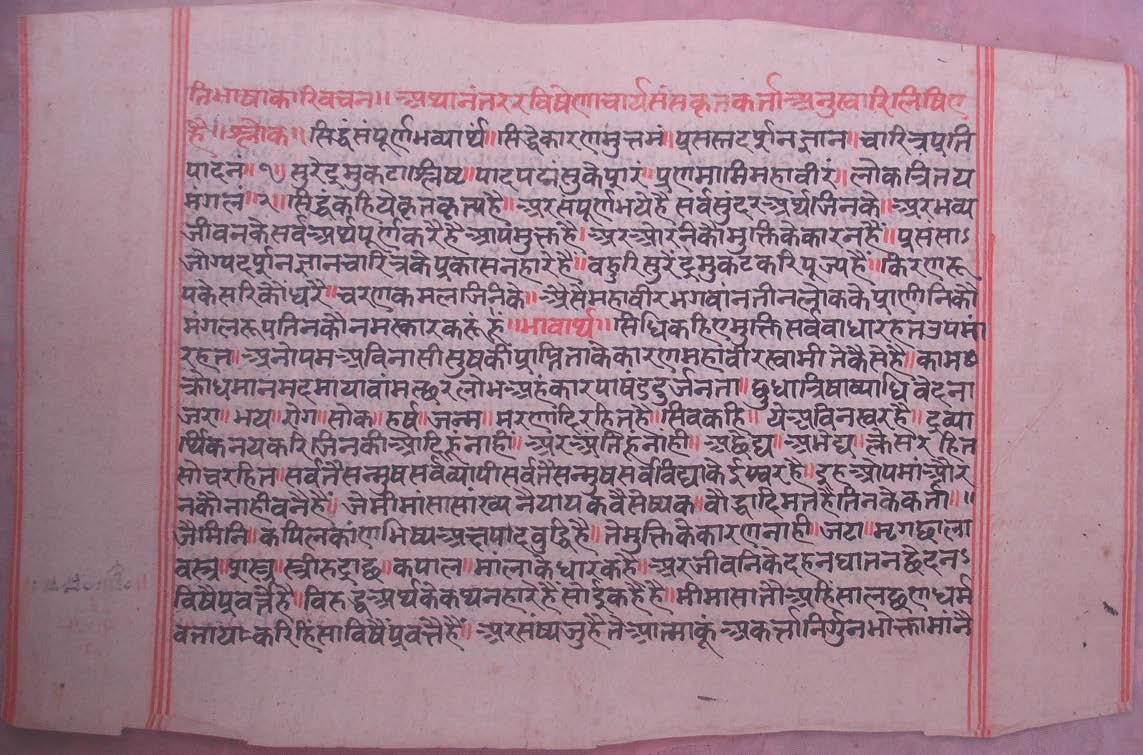 तिभाषाकारिवचन॥ अथानंतररविषेणाचार्यसंसकृतकर्त्ताअनुस्वारिलिषिए
है॥श्लोक॥ सिद्धंसंपूर्णभव्यार्थं॥सिद्धेकारणमुत्तमं॥प्रसस्तदर्शनज्ञान॥चारित्रप्रति
पादनं॥१॥सुरेंद्रमुकटाश्लिष्ट॥पादपद्मंसुकेप्रारं॥प्रणमामिमहावीरं॥लोकत्रितय
मंगलं॥२॥सिद्धकहियेकृतकृत्यहै॥अरसंपूर्णभयेहैसर्वसुंदरअर्थजिनके॥अरभव्य
जीवनकेसर्वअर्थपूर्णकरैहैआपमुक्तहै।अरऔरनिकौमुक्तिकेकारनहैं॥प्रससा
जोग्यदर्शनज्ञानचारित्रकेप्रकासनहारेहै॥बहुरिसुरेंद्रमुकटकरिपूज्यहै॥किरणरू
पकेसरिकौधरै॥चरणकमलजिनिके॥अैसेमहावीरभगवांनतीनलोककेप्राणीनिकौ
मंगलरूपतिनकौनमस्कारकरूंहूं॥भावार्थ॥सिधिकहिएमुक्तिसर्वबाधारहतउपमां
रहत॥अनोपमअविनासीसुषकीप्राप्तिताकेकारणमहावीरस्वामीतेकैसेहै॥काम
क्रोधमानमदमायाबांमत्छरलोभअहंकारपाषंडदुर्जनता॥छुधात्रिषाव्याधिवेदना
जरा॥भय॥रोग॥सोक॥हर्ष॥जन्म॥मरणांदिरहितहै॥सिवकहि॥येअविनस्वरहै॥द्रव्या
र्थिकनयकरिजिनकीआदिहूनाही॥अरअंतिहूनांही॥अछेद्य॥अभेद्य॥क्लेसरहित
सोचरहित॥सर्वतैसन्मुषसर्वव्यापीसर्वतैसन्मुषसर्वविद्याकेईश्वरहै॥इहओपमांऔर
नकौनाहीबनैहैं॥जेमीमांसासांख्यनैयायकवैसेष्यक॥बौद्धादिमतहैतिनकेकर्त्ता॥॥
जैमिनि॥कपिलकांणभिष्यअक्षपादबुद्धिहै॥तेमुक्तिकेकारणनाही॥जटा॥मृगछाला
वस्त्र॥शस्त्र॥स्त्रीरुद्राछ॥कपाल॥मांलाकेधारकहै॥अरजीवनिकेदहनघातनछेदन
विषैप्रवर्त्तैहै॥विरुद्धअर्थकेकथनहारहै॥मीमांसातौअहिंसालछणधर्म
बतायाकरिहिंसाविषैप्रवर्त्तैहैं॥अरसंष्यजुहैतेआत्माकूंअकर्त्तानिर्गुनभोक्तामांनै